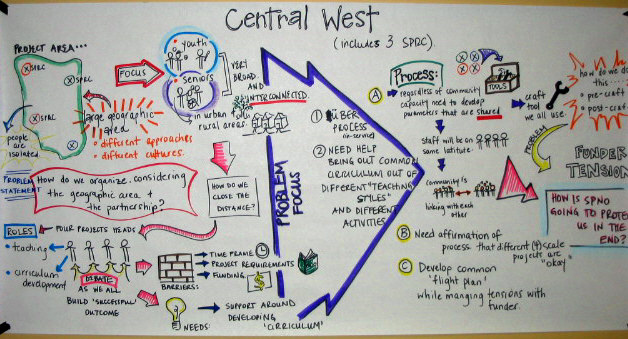 Central West
(includes 3 SPRC)
PROJECT AREA...
SPRC
SPRC
SPRC
people
are
isolated.
large geographic
• different approaches
• different cultures.
FOCUS
• youth
• seniors
VERY
BROAD
AND
INTERCONNECTED
in urban +
rural areas.
PROBLEM
STATEMENT
How do we organize, considering
the geographic area +
the partnership?
HOW DO WE
CLOSE THE
DISTANCE?
ROLES
FOUR PROJECTS HEADS
• teaching
• cirriculum
development
DEBATE
AS WE ALL
BUILD 'SUCCESSFUL'
OUTCOME
BARRIERS:
TIME FRAME
PROJECT REQUIREMENTS
FUNDING
$
NEEDS:
SUPPORT AROUND
DEVELOPING
'CIRRICULUM'
PROBLEM
FOCUS
①
PROCESS
② NEED HELP
BRING OUT COMMON
CIRRICULUM OUT OF
DIFFERENT "TEACHING
STYLES"
AND DIFFERENT
ACTIVITIES
Process:
A
• regardless of community
capacity need to develop
parameters that are shared
TOOLS
craft
tool
we all use.
Staff will be on
same
community is
talking with each
other
B Need affirmation of
process that different (4) scale
projects are
"okay"
C Develop common
'flight plan'
while manging tensions with
funder.
how do we do
this
• pre-craft
• post-craft
PROBLEM
FUNDER
TENSION
HOW IS SPNO
GOING TO PROTECT
US IN THE
END?